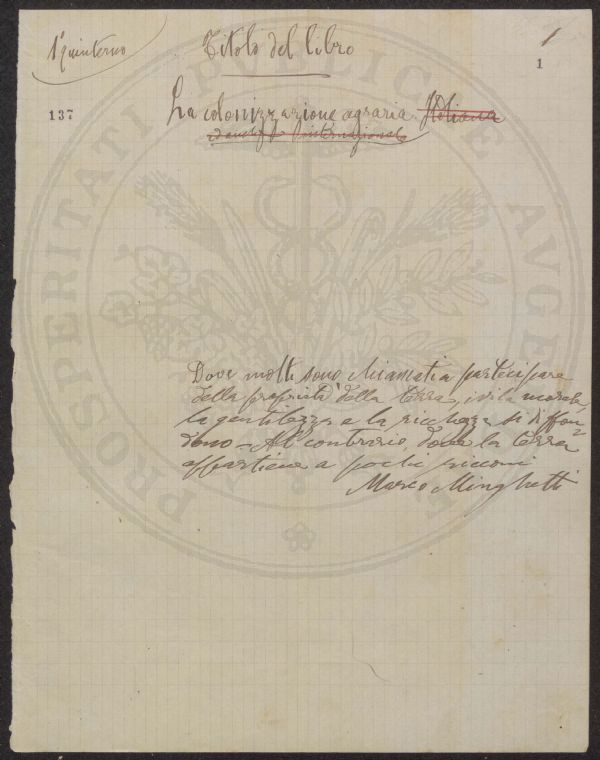 1° quinterno
Titolo del libro
1
1
137
La colonizzazione agraria Italiana
internazionale
Dove molti sono chiamati a partecipare
della proprietà della terra, ivi la morale,
la gentilezza e la ricchezza si diffon=
dono – Al contrario, dove la terra
appartiene a pochi ricconi
Marco Minghetti
PROSPERITATI PUBLICAE AUGE